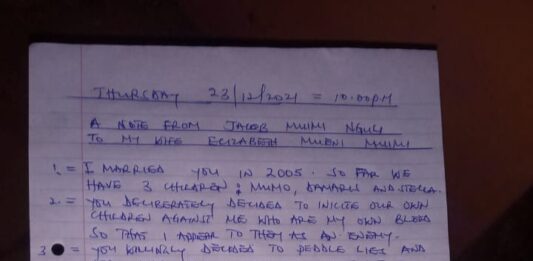 THURSDAY 23/12/2021 = 10.00PM
A NOTE FROM JACOB MWIMI NGULI
TO MY WIFE ELIZABETH MUENI MWIMI
1. = I MARRIED YOU IN 2005. SO FAR WE
HAVE 3 CHILDREN; MUMO, DAMARIS AND STELLA.
2. = YOU DELIBERATELY DECIDED TO INCITE OUR OWN
CHILDREN AGAINST ME WHO ARE MY OWN BLOOD
SO THAT I APPEAR TO THEM AS AN ENEMY.
3 = YOU WILLINGLY DECIDED TO PEDDLE LIES AND